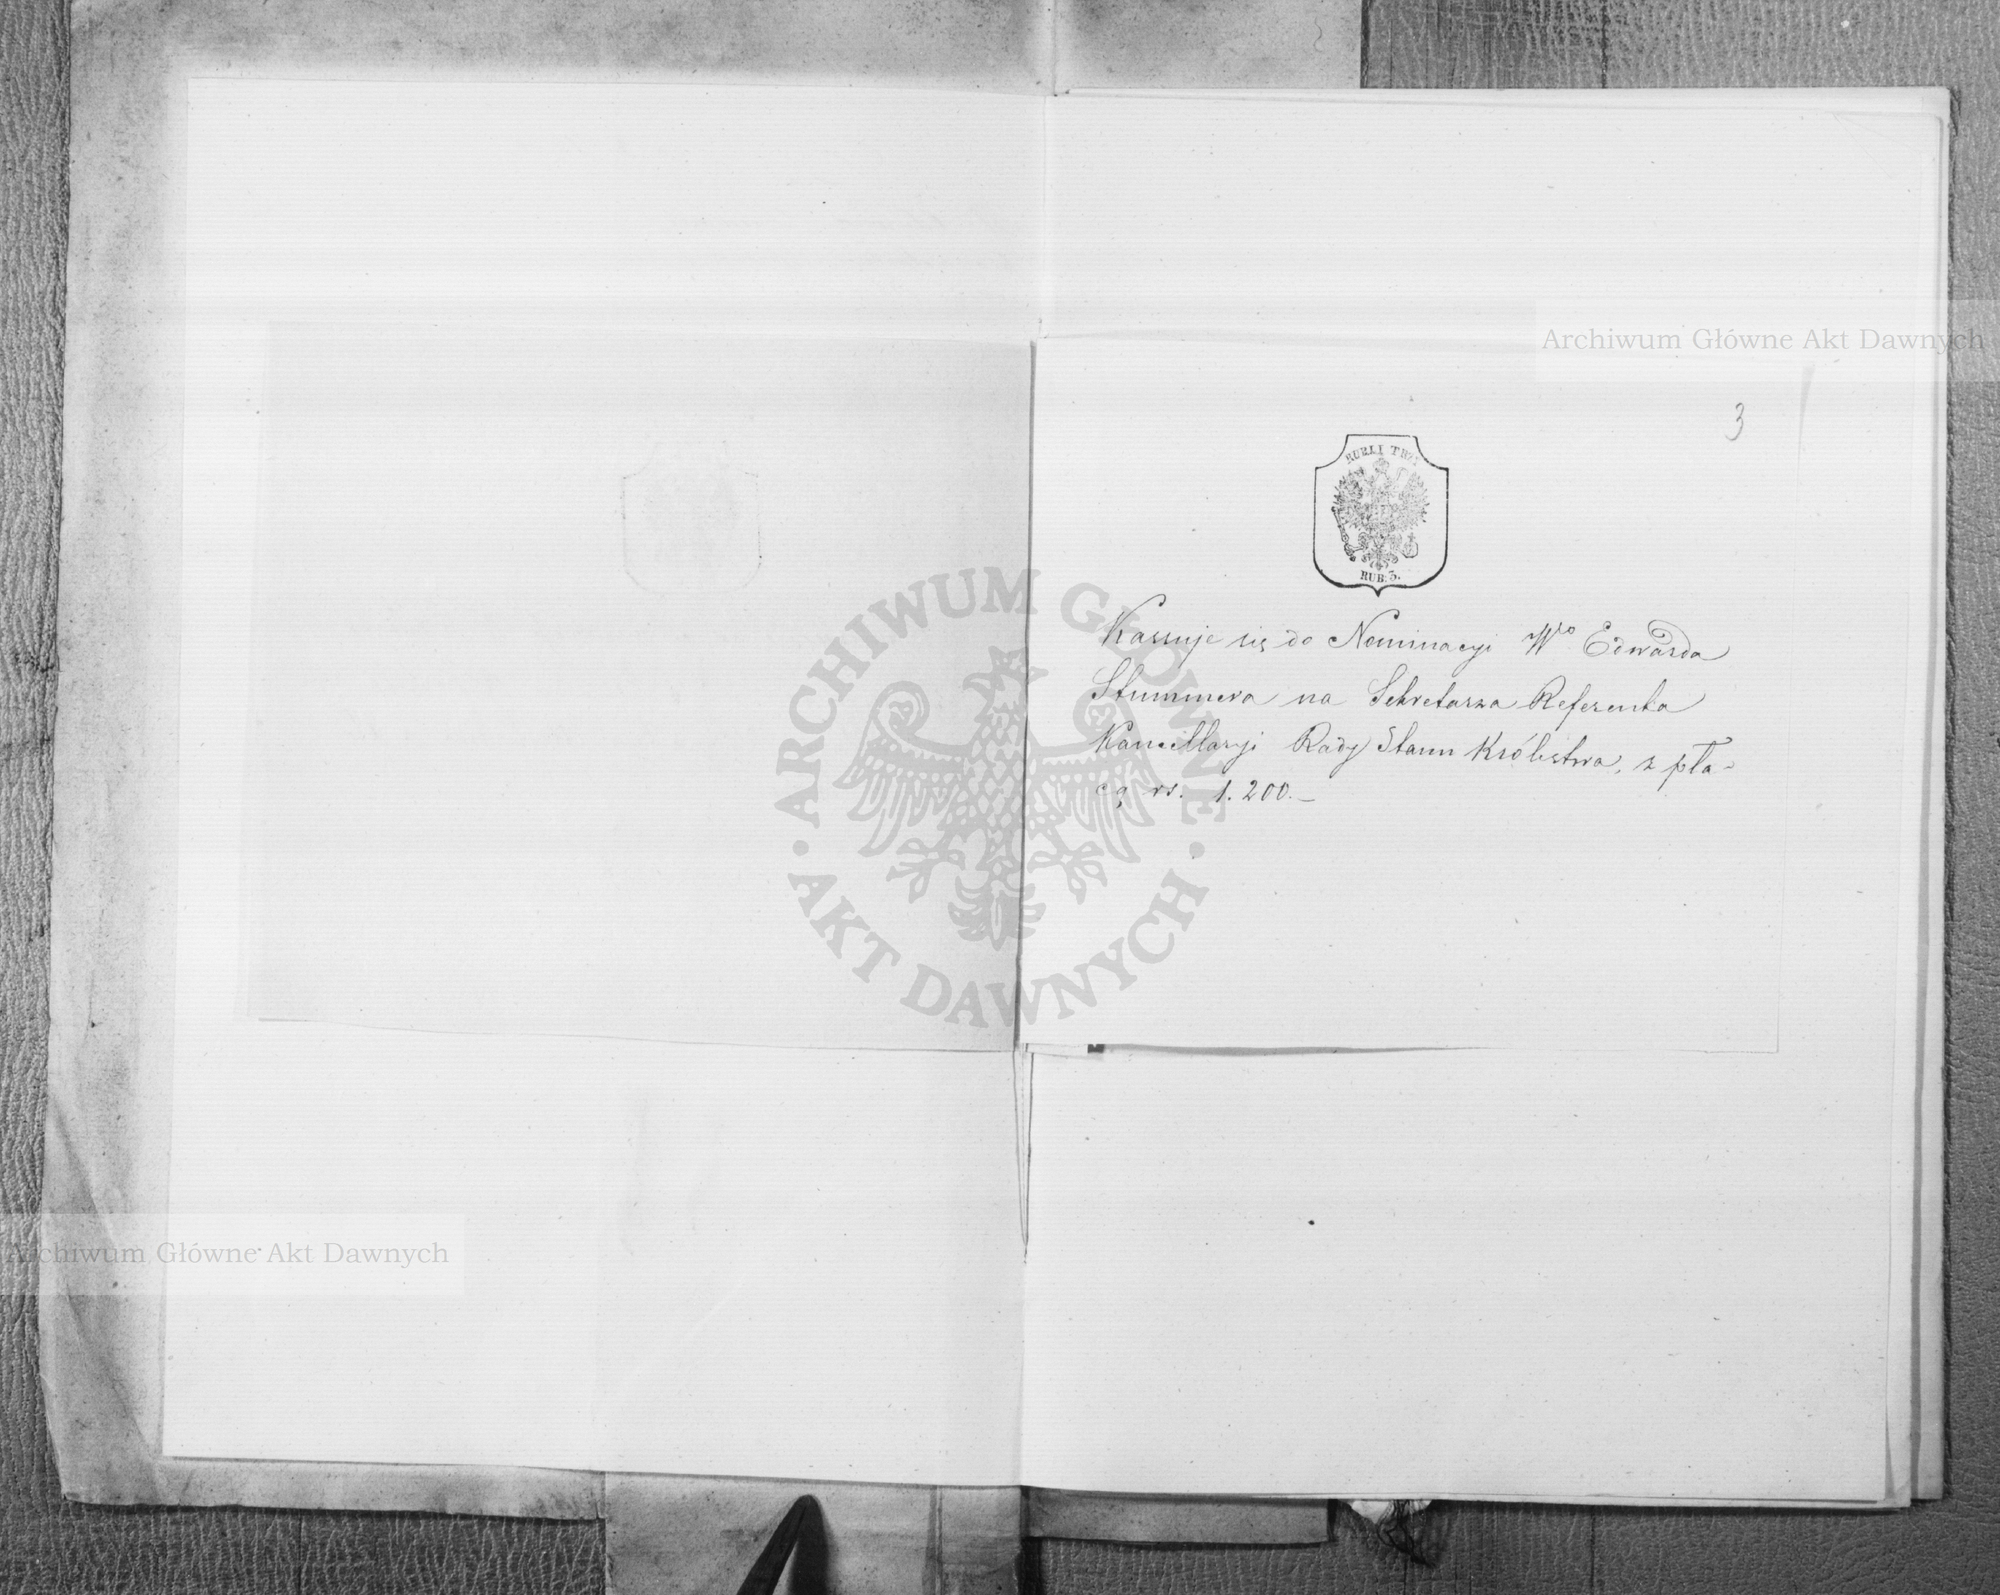 Archiwum Główne Akt Dawnych
3
RUBLI TRZY
RUB: 3.
Kassuje się do Nominacyi Wgo Edwarda
Stummera na Sekretarza Referenta
Kancellaryi Rady Stanu Królestwa, z pła-
cą rs. 1.200.—
ARCHIWUM GŁÓWNE
AKT DAWNYCH
Archiwum Główne Akt Dawnych